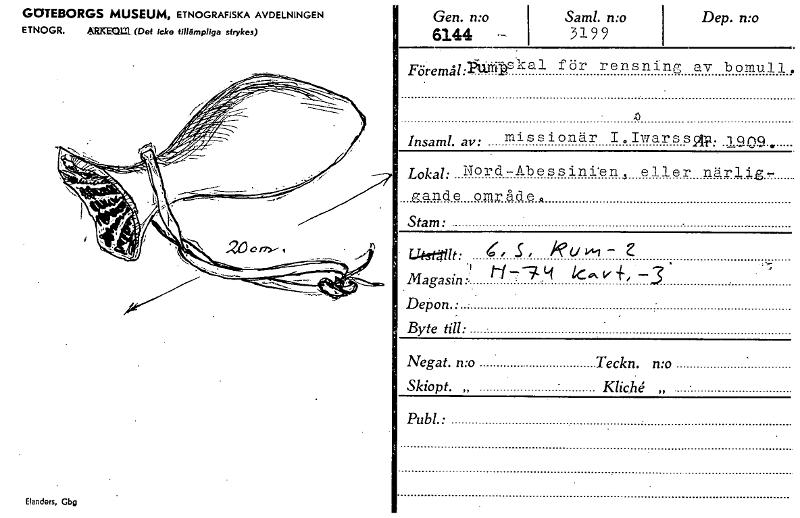 GÖTEBORGS MUSEUM, ETNOGRAFISKA AVDELNINGEN
ETNOGR. ARKEOL. (Det icke tillämpliga strykes)
20 cm.
Elanders, Gbg
Gen. n:o Saml. n:o Dep. n:o
6144 - 3199
Föremål: Pumpskal för rensning av bomull.
Insaml. av: missionär I. Iwarsson År: 1909.
Lokal: Nord-Abessinien, eller närlig-
gande område.
Stam:
Utställt: 6. S. Rum-2
Magasin: H-74 Kart. -3
Depon.:
Byte till:
Negat. n:o Teckn. n:o
Skiopt. „ Kliché „
Publ.: